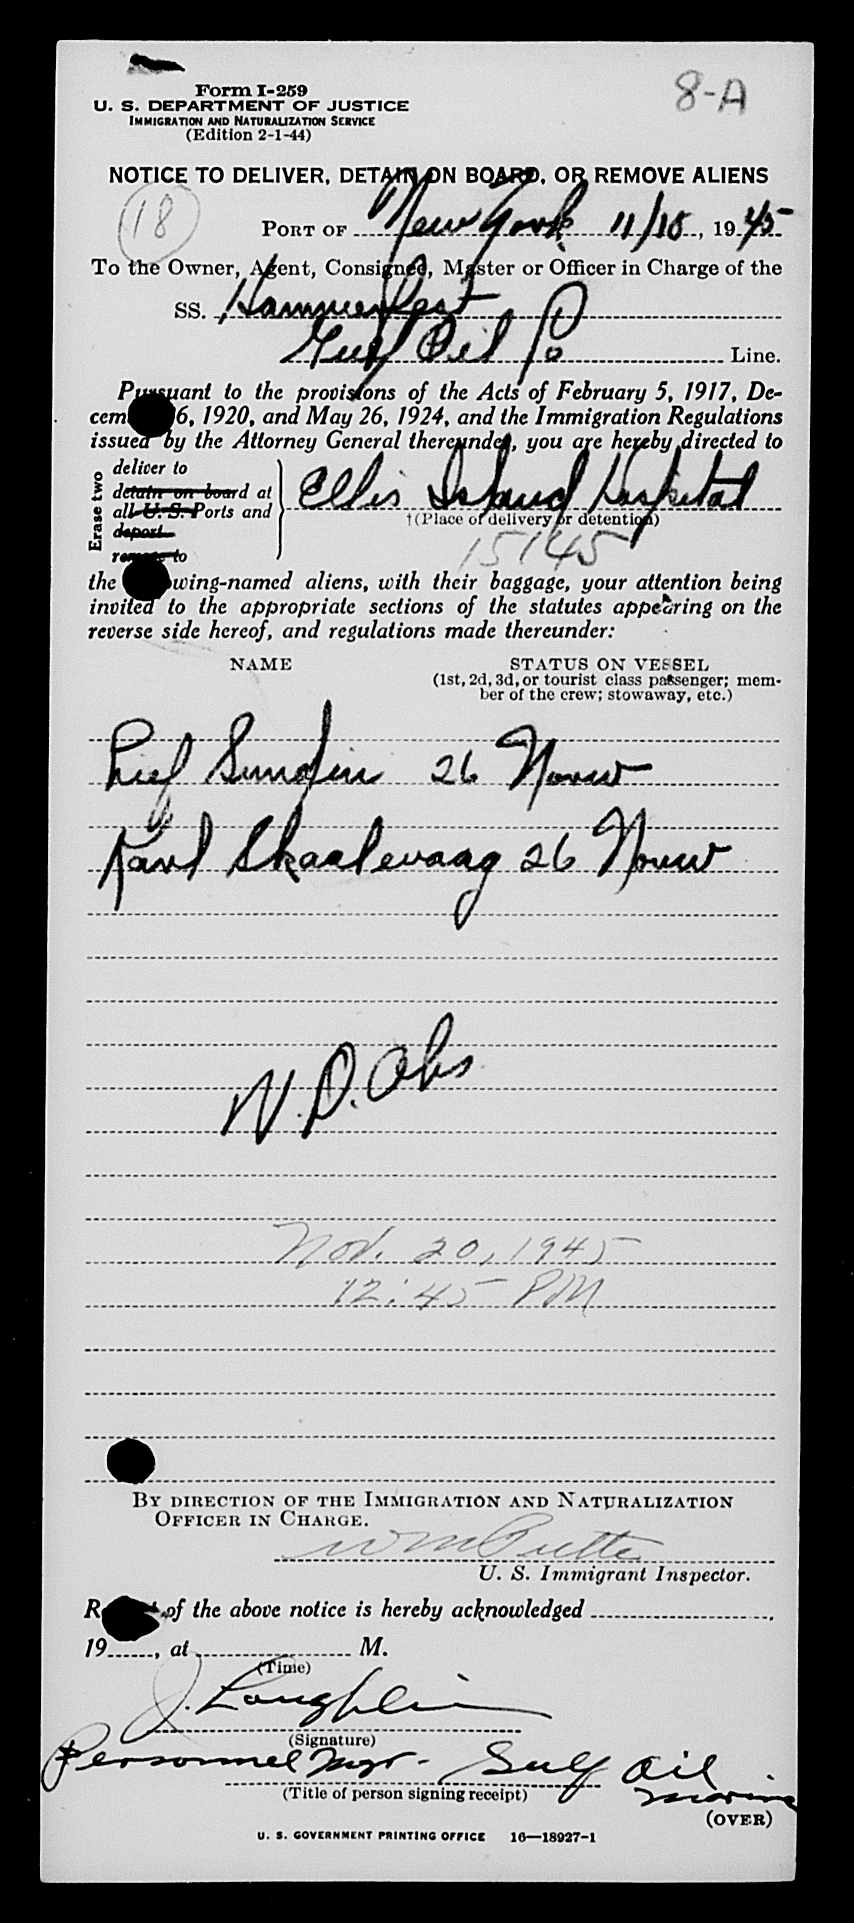 Form I-259
8-A
U. S. DEPARTMENT OF JUSTICE
IMMIGRATION AND NATURALIZATION SERVICE
(Edition 2-1-44)
NOTICE TO DELIVER, DETAIN ON BOARD, OR REMOVE ALIENS
18
PORT OF New York 11/18, 1945
To the Owner, Agent, Consignee, Master or Officer in Charge of the
SS. Hammerfest
Gulf Oil Co Line.
Pursuant to the provisions of the Acts of February 5, 1917, De-
cem 6, 1920, and May 26, 1924, and the Immigration Regulations
issued by the Attorney General thereunder, you are hereby directed to
Erase two
deliver to
detain on board at
all U. S. Ports and
deport
remove to
Ellis Island Hospital
†(Place of delivery or detention)
15145
the wing-named aliens, with their baggage, your attention being
invited to the appropriate sections of the statutes appearing on the
reverse side hereof, and regulations made thereunder:
NAME STATUS ON VESSEL
(1st, 2d, 3d, or tourist class passenger; mem-
ber of the crew; stowaway, etc.)
Leif Sundin 26 Norw
Karl Skaalevaag 26 Norw
N.D. Obs
Nov. 20, 1945
12:45 PM
BY DIRECTION OF THE IMMIGRATION AND NATURALIZATION
OFFICER IN CHARGE.
U. S. Immigrant Inspector.
R of the above notice is hereby acknowledged
19 , at M.
(Time)
J. Loughlin
(Signature)
Personnel Mgr - Gulf Oil
Marine
(Title of person signing receipt)
(OVER)
U. S. GOVERNMENT PRINTING OFFICE 16—18927-1